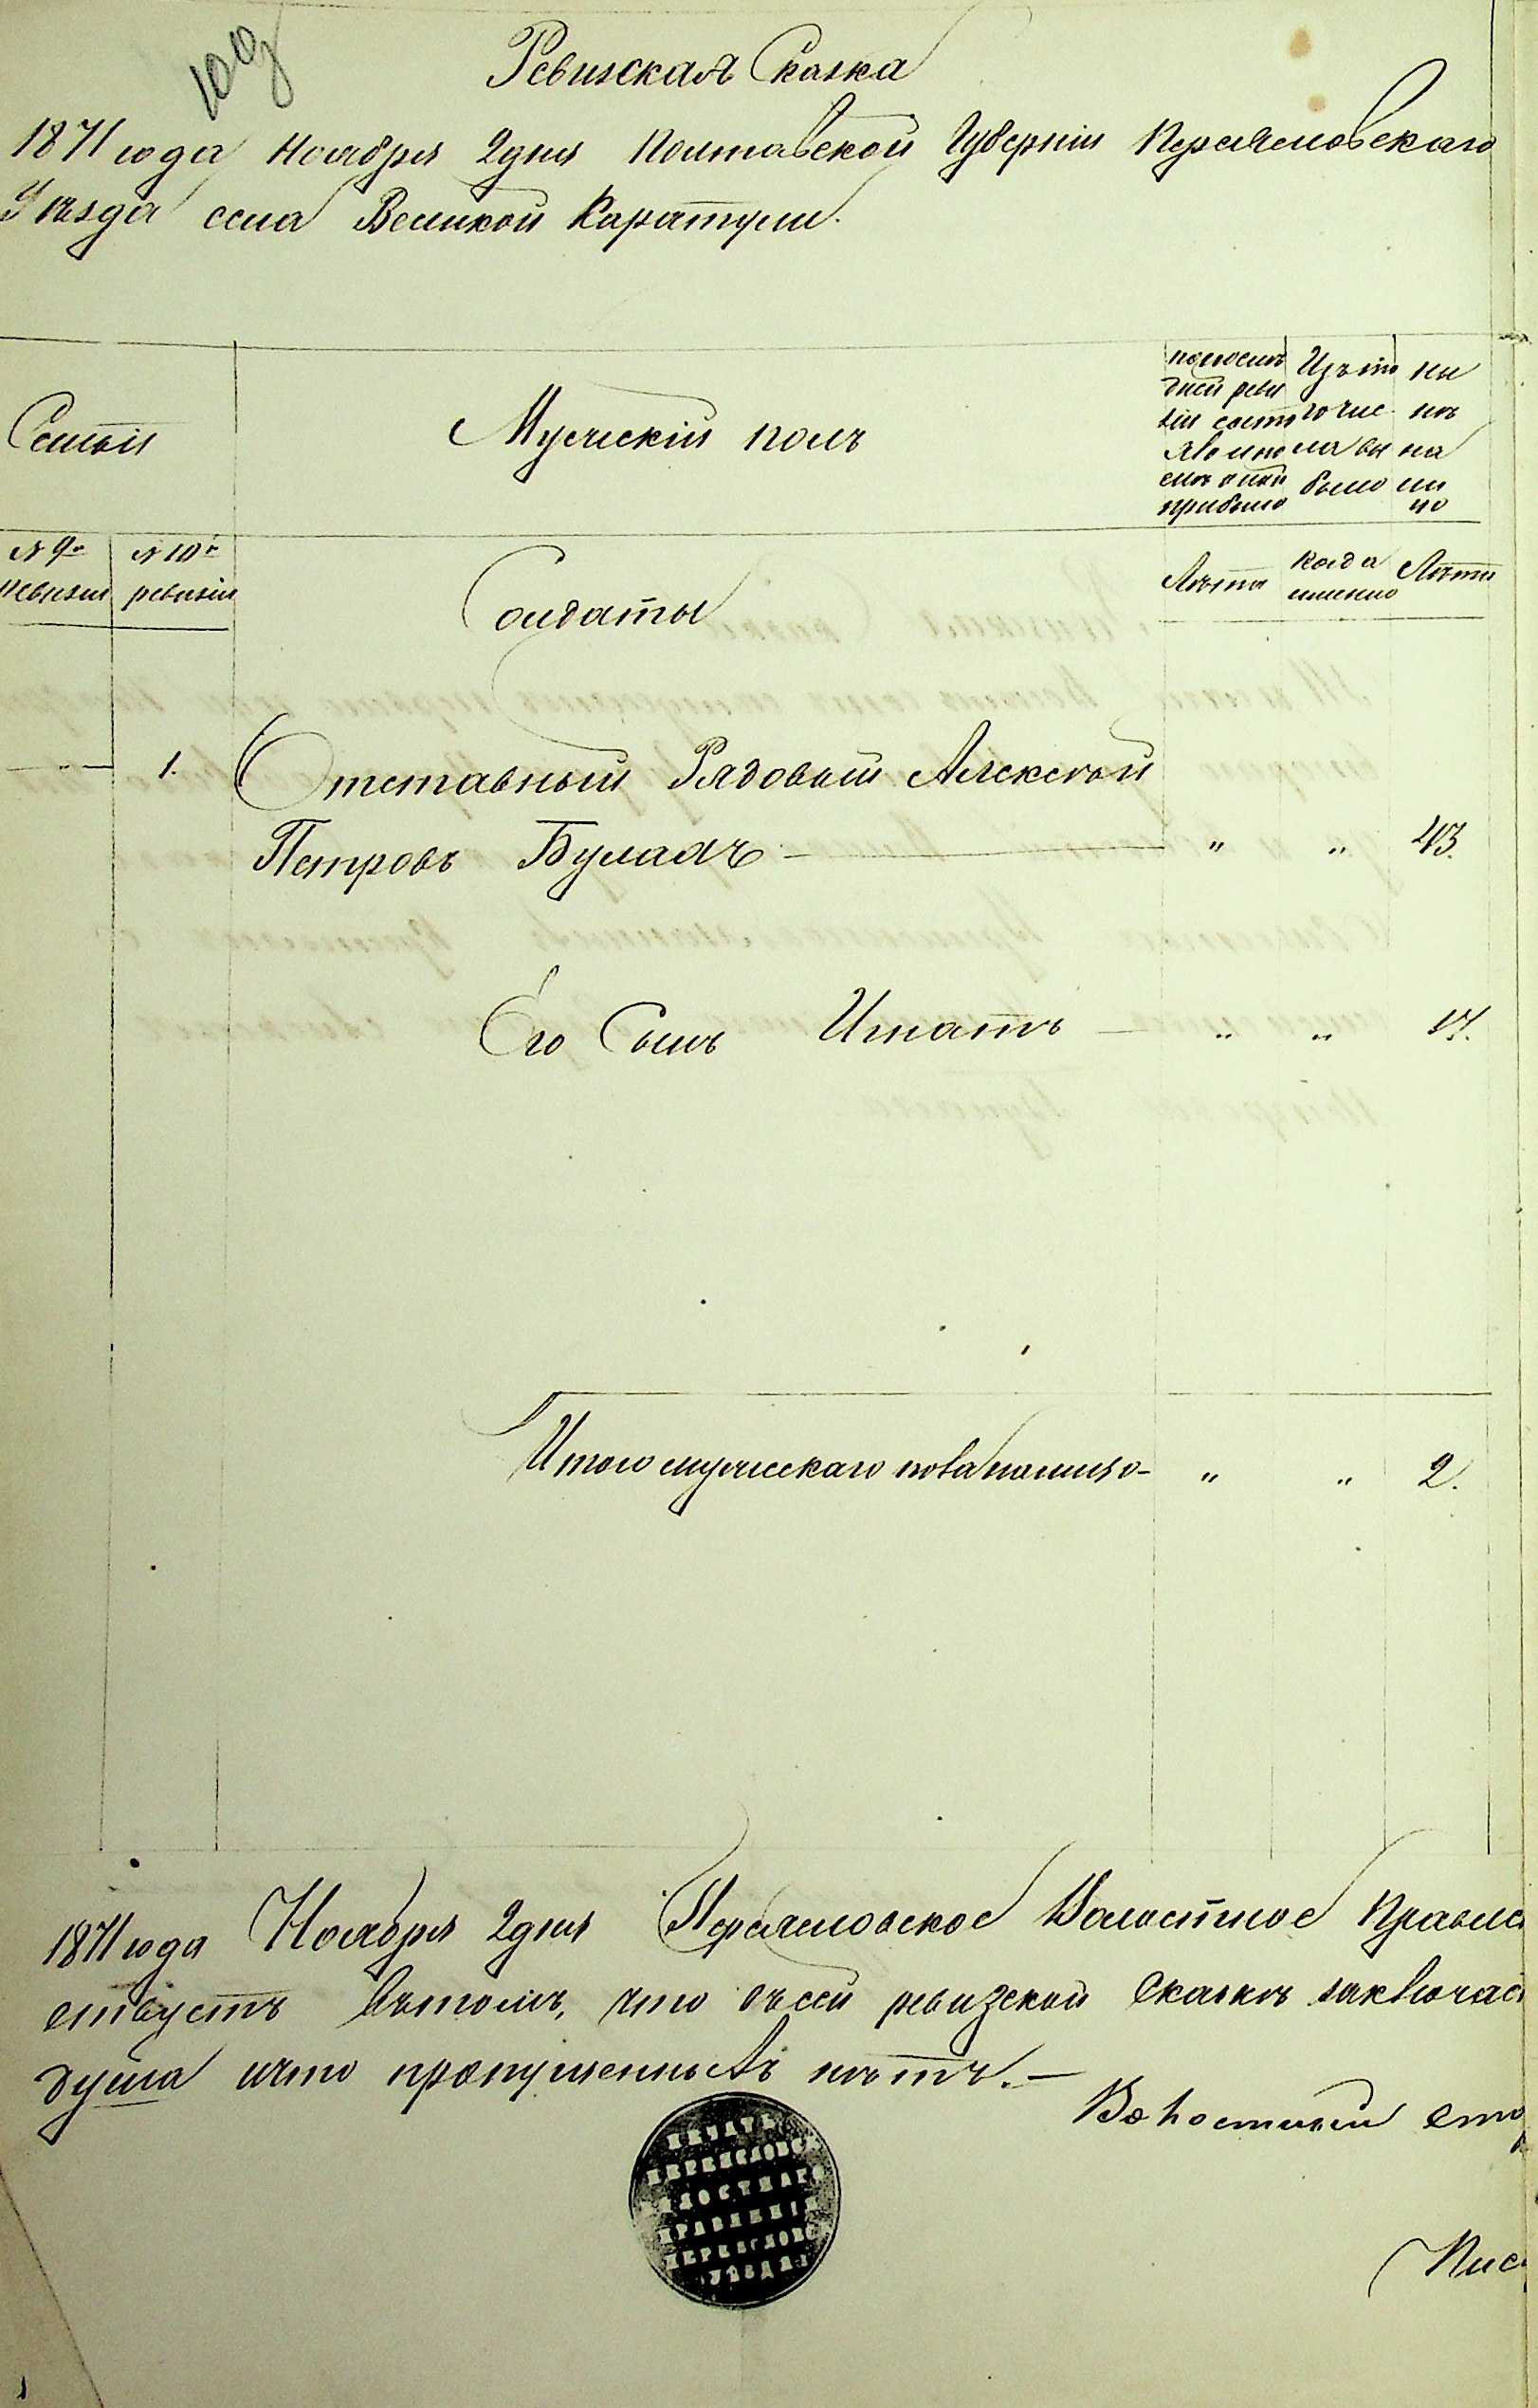 109
Ревизская Сказка
1871 года Ноября 2 дня Полтавской Губерніи Переяславскаго
Уѣзда села Великой Каратули.
Семьи
Мужескій полъ
по последней ревизіи состояло и послѣ оной прибыло
Изъ то го числа выбыло
нынѣ на лицо
№ 9й ревизіи
№ 10й ревизіи
Солдаты
Лѣта
когда именно
Лѣта
1. Отставный Рядовый Алексѣй
Петровъ Булахъ — " " 43.
Его Сынъ Игнатъ — " " 17.
Итого мужескаго пола налицо — " " 2.
1871 года Ноября 2 дня Переяславское Волостное Правле
ствуетъ въ томъ, что въ сей ревизской сказкѣ заключае
душа и что пропущенныхъ нѣтъ. —
Волостный ст
Пис
ПЕЧАТЬ
ПЕРЕЯСЛОВС
ВОЛОСТНАГО
ПРАВЛЕНІЯ
ПЕРЕЯСЛОВС
УѢЗДА